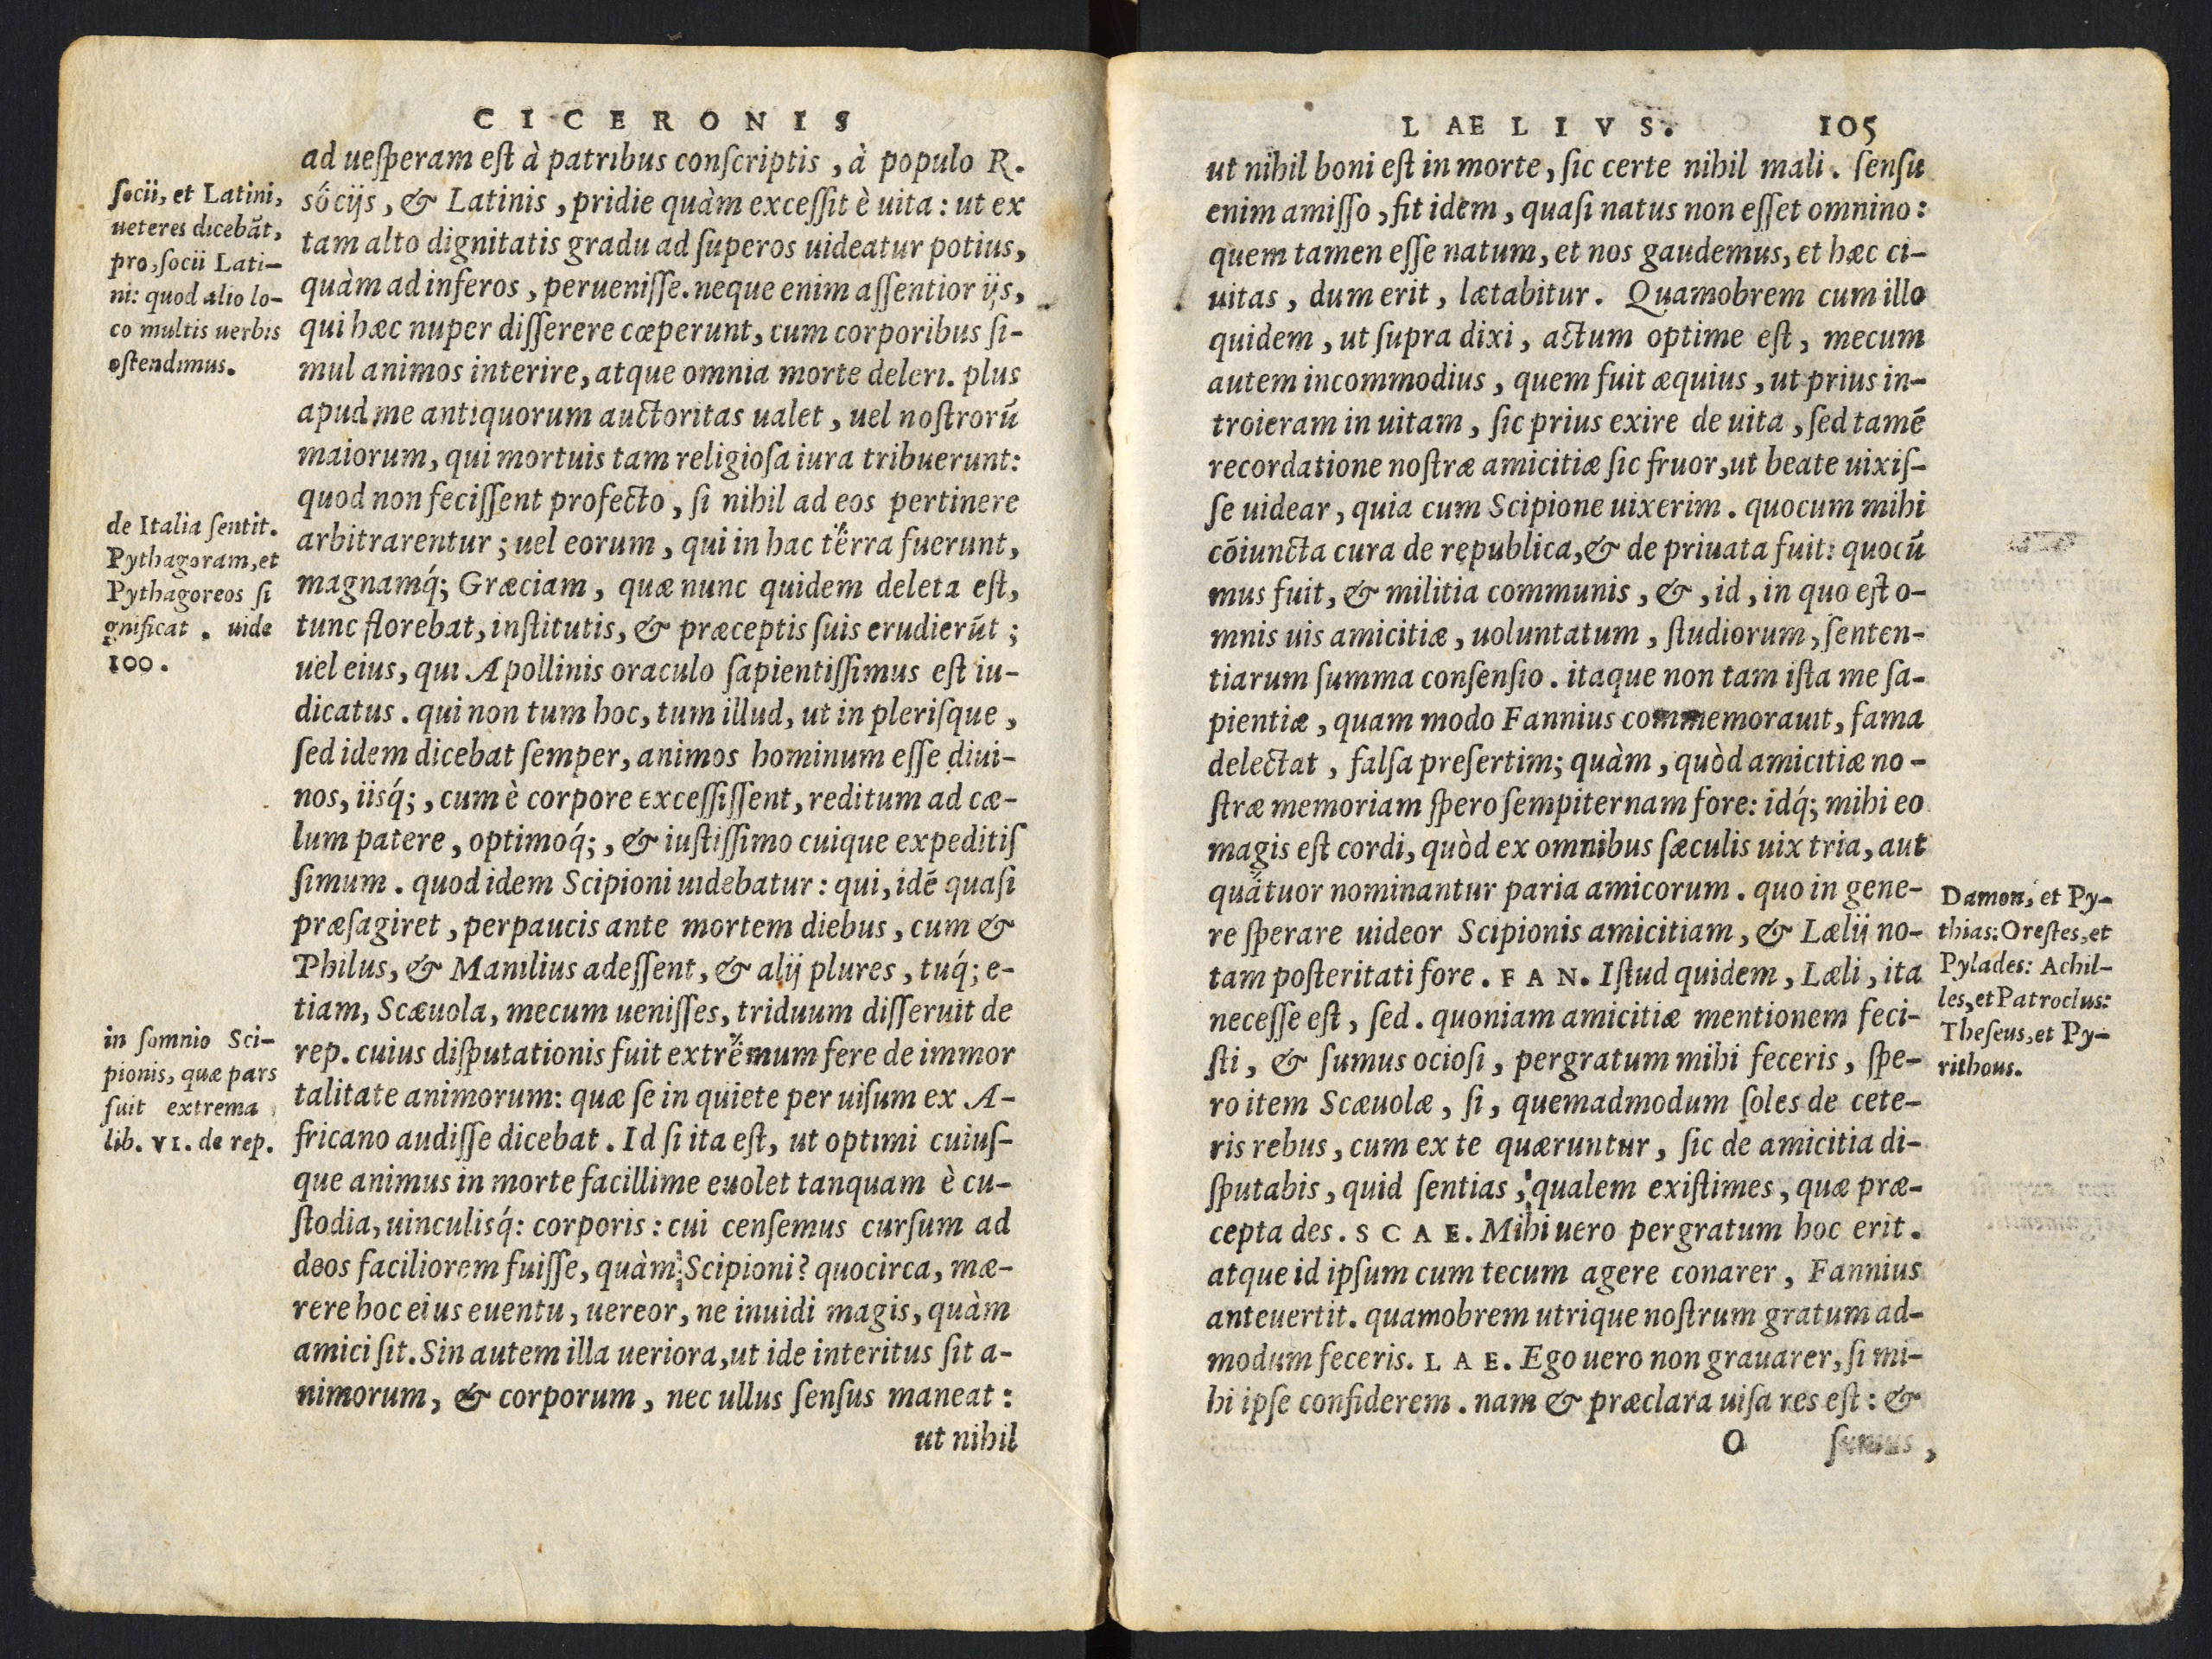 CICERONIS
ad ueſperam eſt à patribus conſcriptis, à populo R.
sócijs, & Latinis, pridie quàm exceſſit è uita: ut ex
tam alto dignitatis gradu ad ſuperos uideatur potius,
quàm ad inferos, perueniſſe. neque enim aſſentior ijs,
qui hæc nuper diſſerere cœperunt, cum corporibus ſi-
mul animos interire, atque omnia morte deleri. plus
apud me antiquorum auctoritas ualet, uel noſtrorū
maiorum, qui mortuis tam religioſa iura tribuerunt:
quod non feciſſent profecto, ſi nihil ad eos pertinere
arbitrarentur; uel eorum, qui in hac terra fuerunt,
magnamq́; Græciam, quæ nunc quidem deleta eſt,
tunc florebat, inſtitutis, & præceptis ſuis erudierūt;
uel eius, qui Apollinis oraculo ſapientiſſimus eſt iu-
dicatus. qui non tum hoc, tum illud, ut in pleriſque,
ſed idem dicebat ſemper, animos hominum eſſe diui-
nos, iisq́;, cum è corpore exceſſiſſent, reditum ad cæ-
lum patere, optimoq́;, & iuſtiſſimo cuique expeditiſ
ſimum. quod idem Scipioni uidebatur: qui, idē quaſi
præſagiret, perpaucis ante mortem diebus, cum &
Philus, & Manilius adeſſent, & alij plures, tuq́; e-
tiam, Scæuola, mecum ueniſſes, triduum diſſeruit de
rep. cuius diſputationis fuit extremum fere de immor
talitate animorum: quæ ſe in quiete per uiſum ex A-
fricano audiſſe dicebat. Id ſi ita eſt, ut optimi cuiuſ-
que animus in morte facillime euolet tanquam è cu-
ſtodia, uinculisq́: corporis: cui cenſemus curſum ad
deos faciliorem fuiſſe, quàm Scipioni? quocirca, mæ-
rere hoc eius euentu, uereor, ne inuidi magis, quàm
amici ſit. Sin autem illa ueriora, ut ide interitus ſit a-
nimorum, & corporum, nec ullus ſenſus maneat:
ut nihil
ſocii, et Latini,
ueteres dicebāt,
pro, ſocii Lati-
ni: quod alio lo-
co multis uerbis
oſtendimus.
de Italia ſentit.
Pythagoram, et
Pythagoreos ſi
gnificat. uide
100.
in ſomnio Sci-
pionis, quæ pars
fuit extrema
lib. VI. de rep.
LAELIVS. 105
ut nihil boni eſt in morte, ſic certe nihil mali. ſenſu
enim amiſſo, fit idem, quaſi natus non eſſet omnino:
quem tamen eſſe natum, et nos gaudemus, et hæc ci-
uitas, dum erit, lætabitur. Quamobrem cum illo
quidem, ut ſupra dixi, actum optime eſt, mecum
autem incommodius, quem fuit æquius, ut prius in-
troieram in uitam, ſic prius exire de uita, ſed tamē
recordatione noſtræ amicitiæ ſic fruor, ut beate uixiſ-
ſe uidear, quia cum Scipione uixerim. quocum mihi
cōiuncta cura de republica, & de priuata fuit: quocū
mus fuit, & militia communis, &, id, in quo eſt o-
mnis uis amicitiæ, uoluntatum, ſtudiorum, ſenten-
tiarum ſumma conſenſio. itaque non tam iſta me ſa-
pientiæ, quam modo Fannius commemorauit, fama
delectat, falſa preſertim; quàm, quòd amicitiæ no-
ſtræ memoriam ſpero ſempiternam fore: idq́; mihi eo
magis eſt cordi, quòd ex omnibus ſæculis uix tria, aut
quatuor nominantur paria amicorum. quo in gene-
re ſperare uideor Scipionis amicitiam, & Lælij no-
tam poſteritati fore. FAN. Iſtud quidem, Læli, ita
neceſſe eſt, ſed. quoniam amicitiæ mentionem feci-
ſti, & ſumus ocioſi, pergratum mihi feceris, ſpe-
ro item Scæuolæ, ſi, quemadmodum ſoles de cete-
ris rebus, cum ex te quæruntur, ſic de amicitia di-
ſputabis, quid ſentias, qualem exiſtimes, quæ præ-
cepta des. SCAE. Mihi uero pergratum hoc erit.
atque id ipſum cum tecum agere conarer, Fannius
anteuertit. quamobrem utrique noſtrum gratum ad-
modum feceris. LAE. Ego uero non grauarer, ſi mi-
hi ipſe confiderem. nam & præclara uiſa res eſt: &
O ſumus,
Damon, et Py-
thias: Oreſtes, et
Pylades: Achil-
les, et Patroclus:
Theſeus, et Py-
rithous.